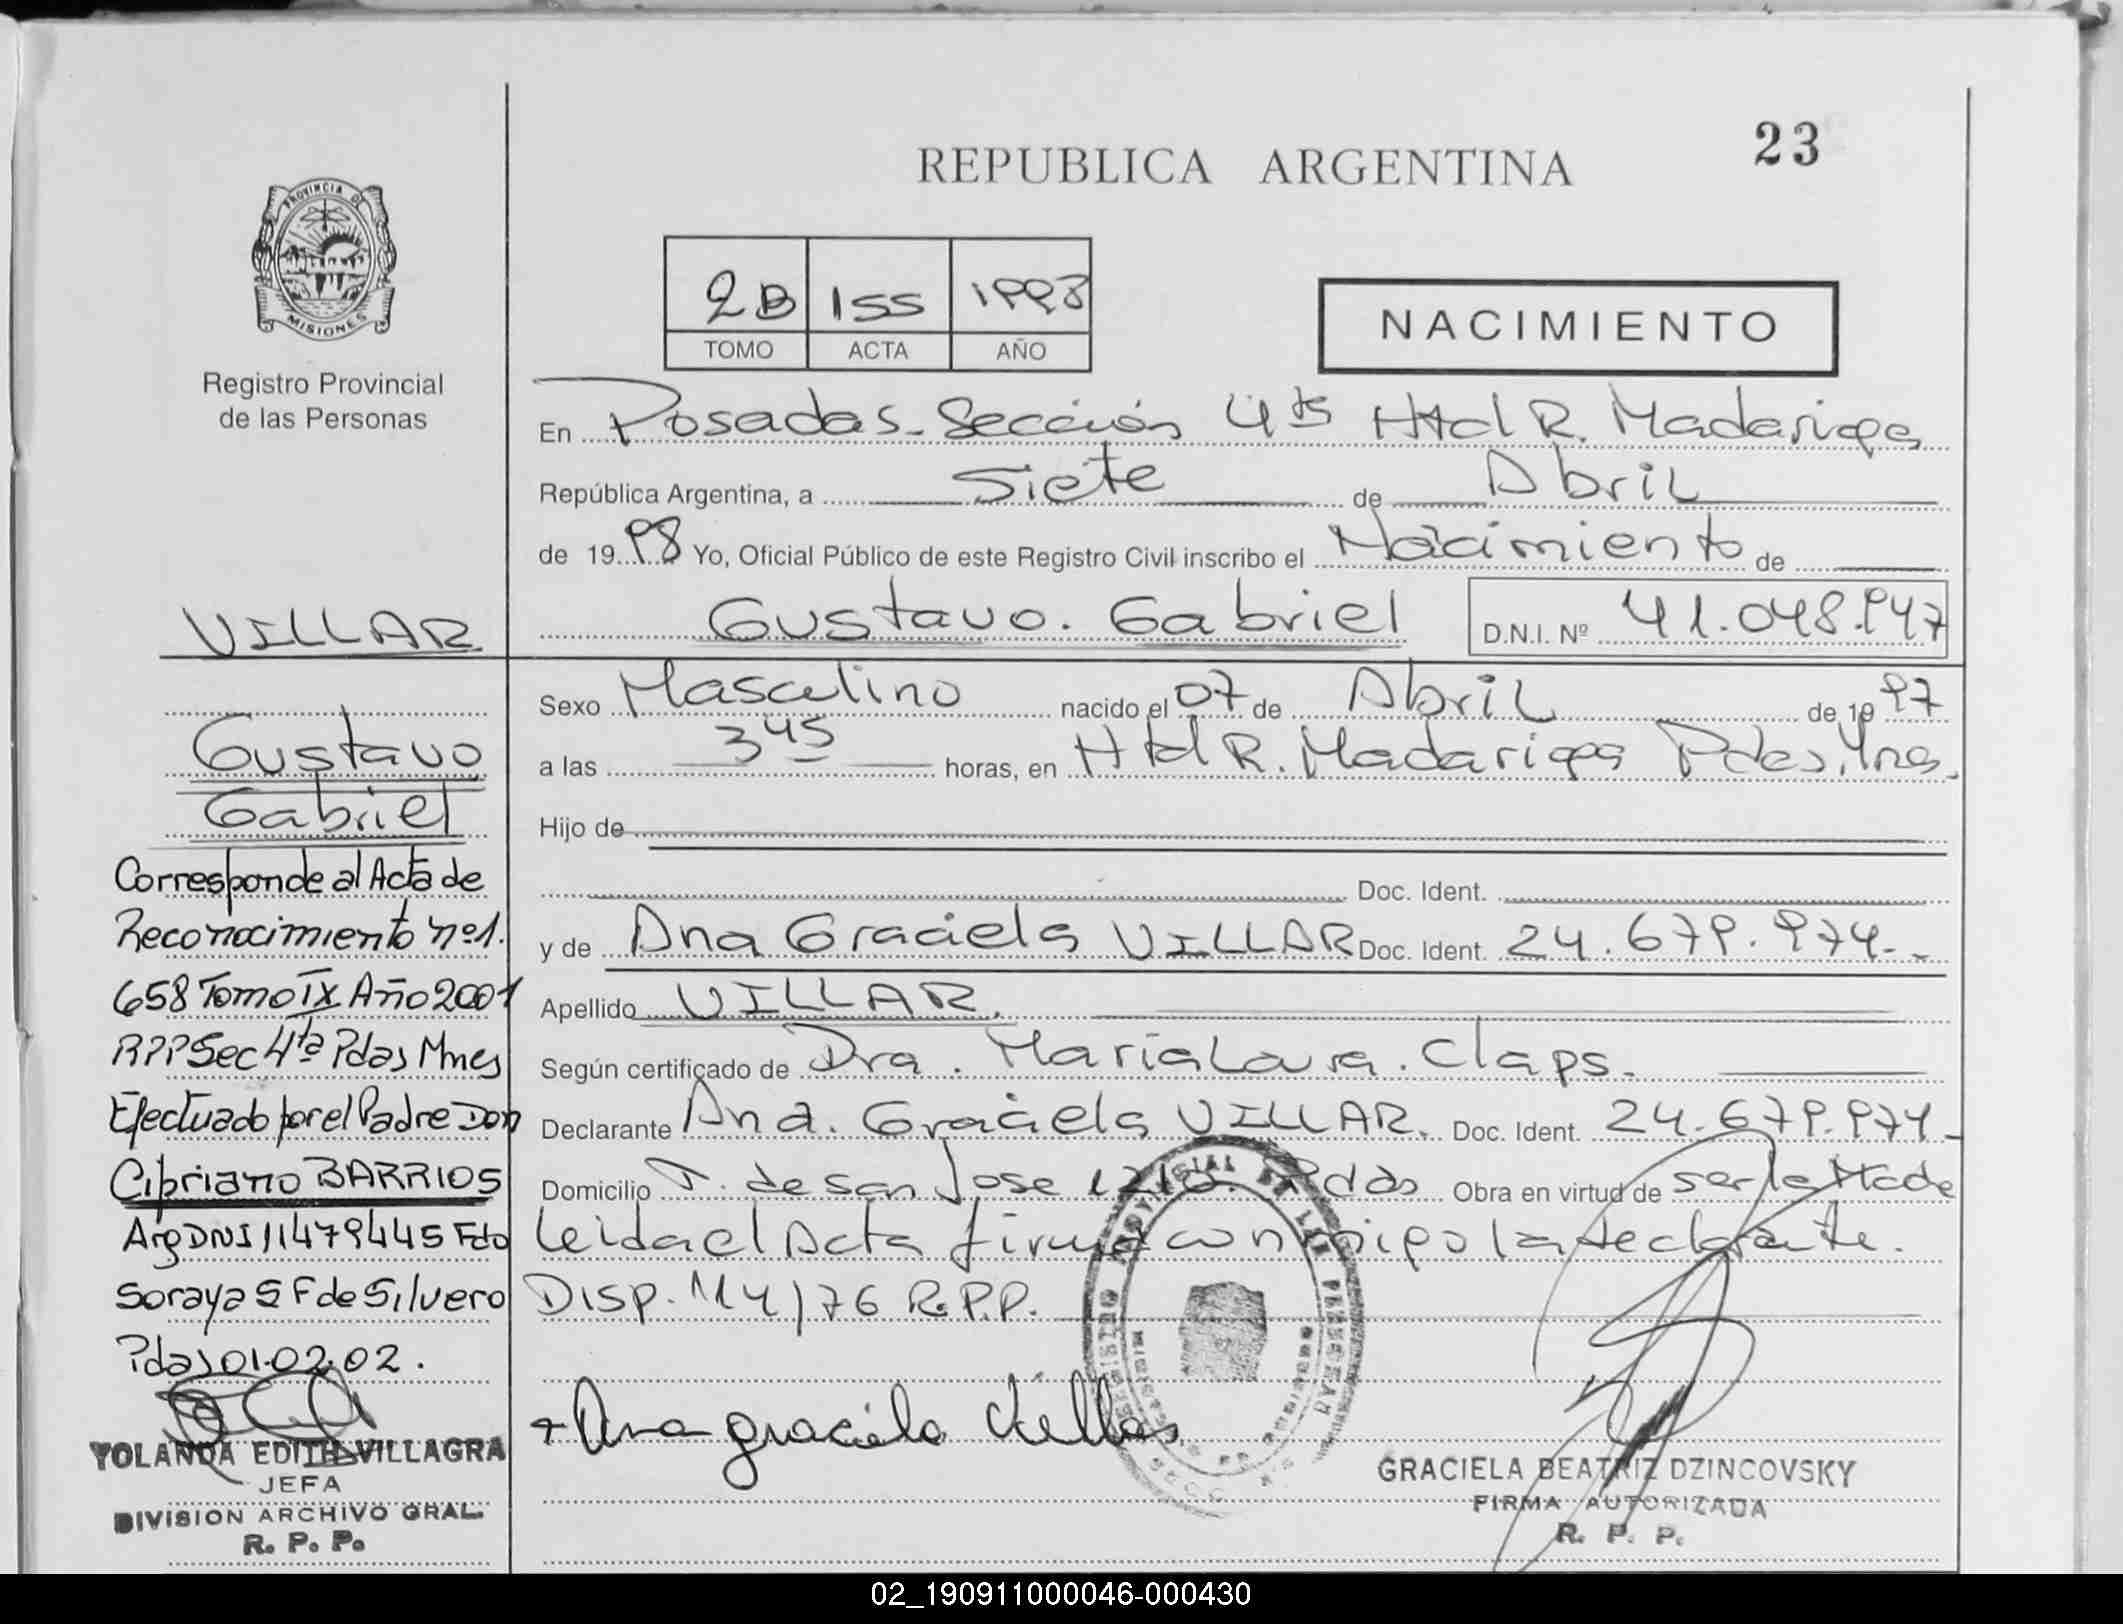 23
REPUBLICA ARGENTINA
PROVINCIA DE
MISIONES
Registro Provincial
de las Personas
2B 155 1998
TOMO ACTA AÑO
NACIMIENTO
En Posadas-Sección 4ta Htal R. Madariaga
República Argentina, a Siete de Abril
de 1998 Yo, Oficial Público de este Registro Civil inscribo el Nacimiento de
Gustavo. Gabriel D.N.I. Nº 41.048.947
Sexo Masculino nacido el 07 de Abril de 1997
a las 345 horas, en Htal R. Madariaga Pdas, Mnes.
Hijo de
Doc. Ident.
y de Ana Graciela VILLAR Doc. Ident. 24.679.974.-
Apellido VILLAR.
Según certificado de Dra. María Laura. Claps.
Declarante Ana. Graciela VILLAR. Doc. Ident. 24.679.974-
Domicilio T. de San Jose 1210. Pdas Obra en virtud de ser la Made
leida el Acta firma conmigo la declarante.
DISP. 114/76 R.P.P.
Ana graciela Villar
GRACIELA BEATRIZ DZINCOVSKY
FIRMA AUTORIZADA
R. P. P.
VILLAR
Gustavo
Gabriel
Corresponde al Acta de
Reconocimiento nº1.
658 Tomo IX Año 2001
RPP Sec 4ta Pdas Mnes
Efectuado por el Padre Don
Cipriano BARRIOS
Arg DNI 11479445 Fdo
Soraya S F de Silvero
Pdas 01-02-02.
YOLANDA EDITH VILLAGRA
JEFA
DIVISION ARCHIVO GRAL.
R. P. P.
02_190911000046-000430